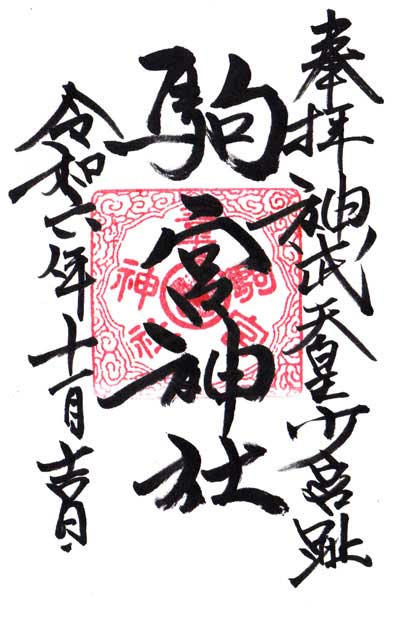 奉拝 神武天皇少宮趾
駒宮神社
令和六年十一月吉日
駒宮
神社